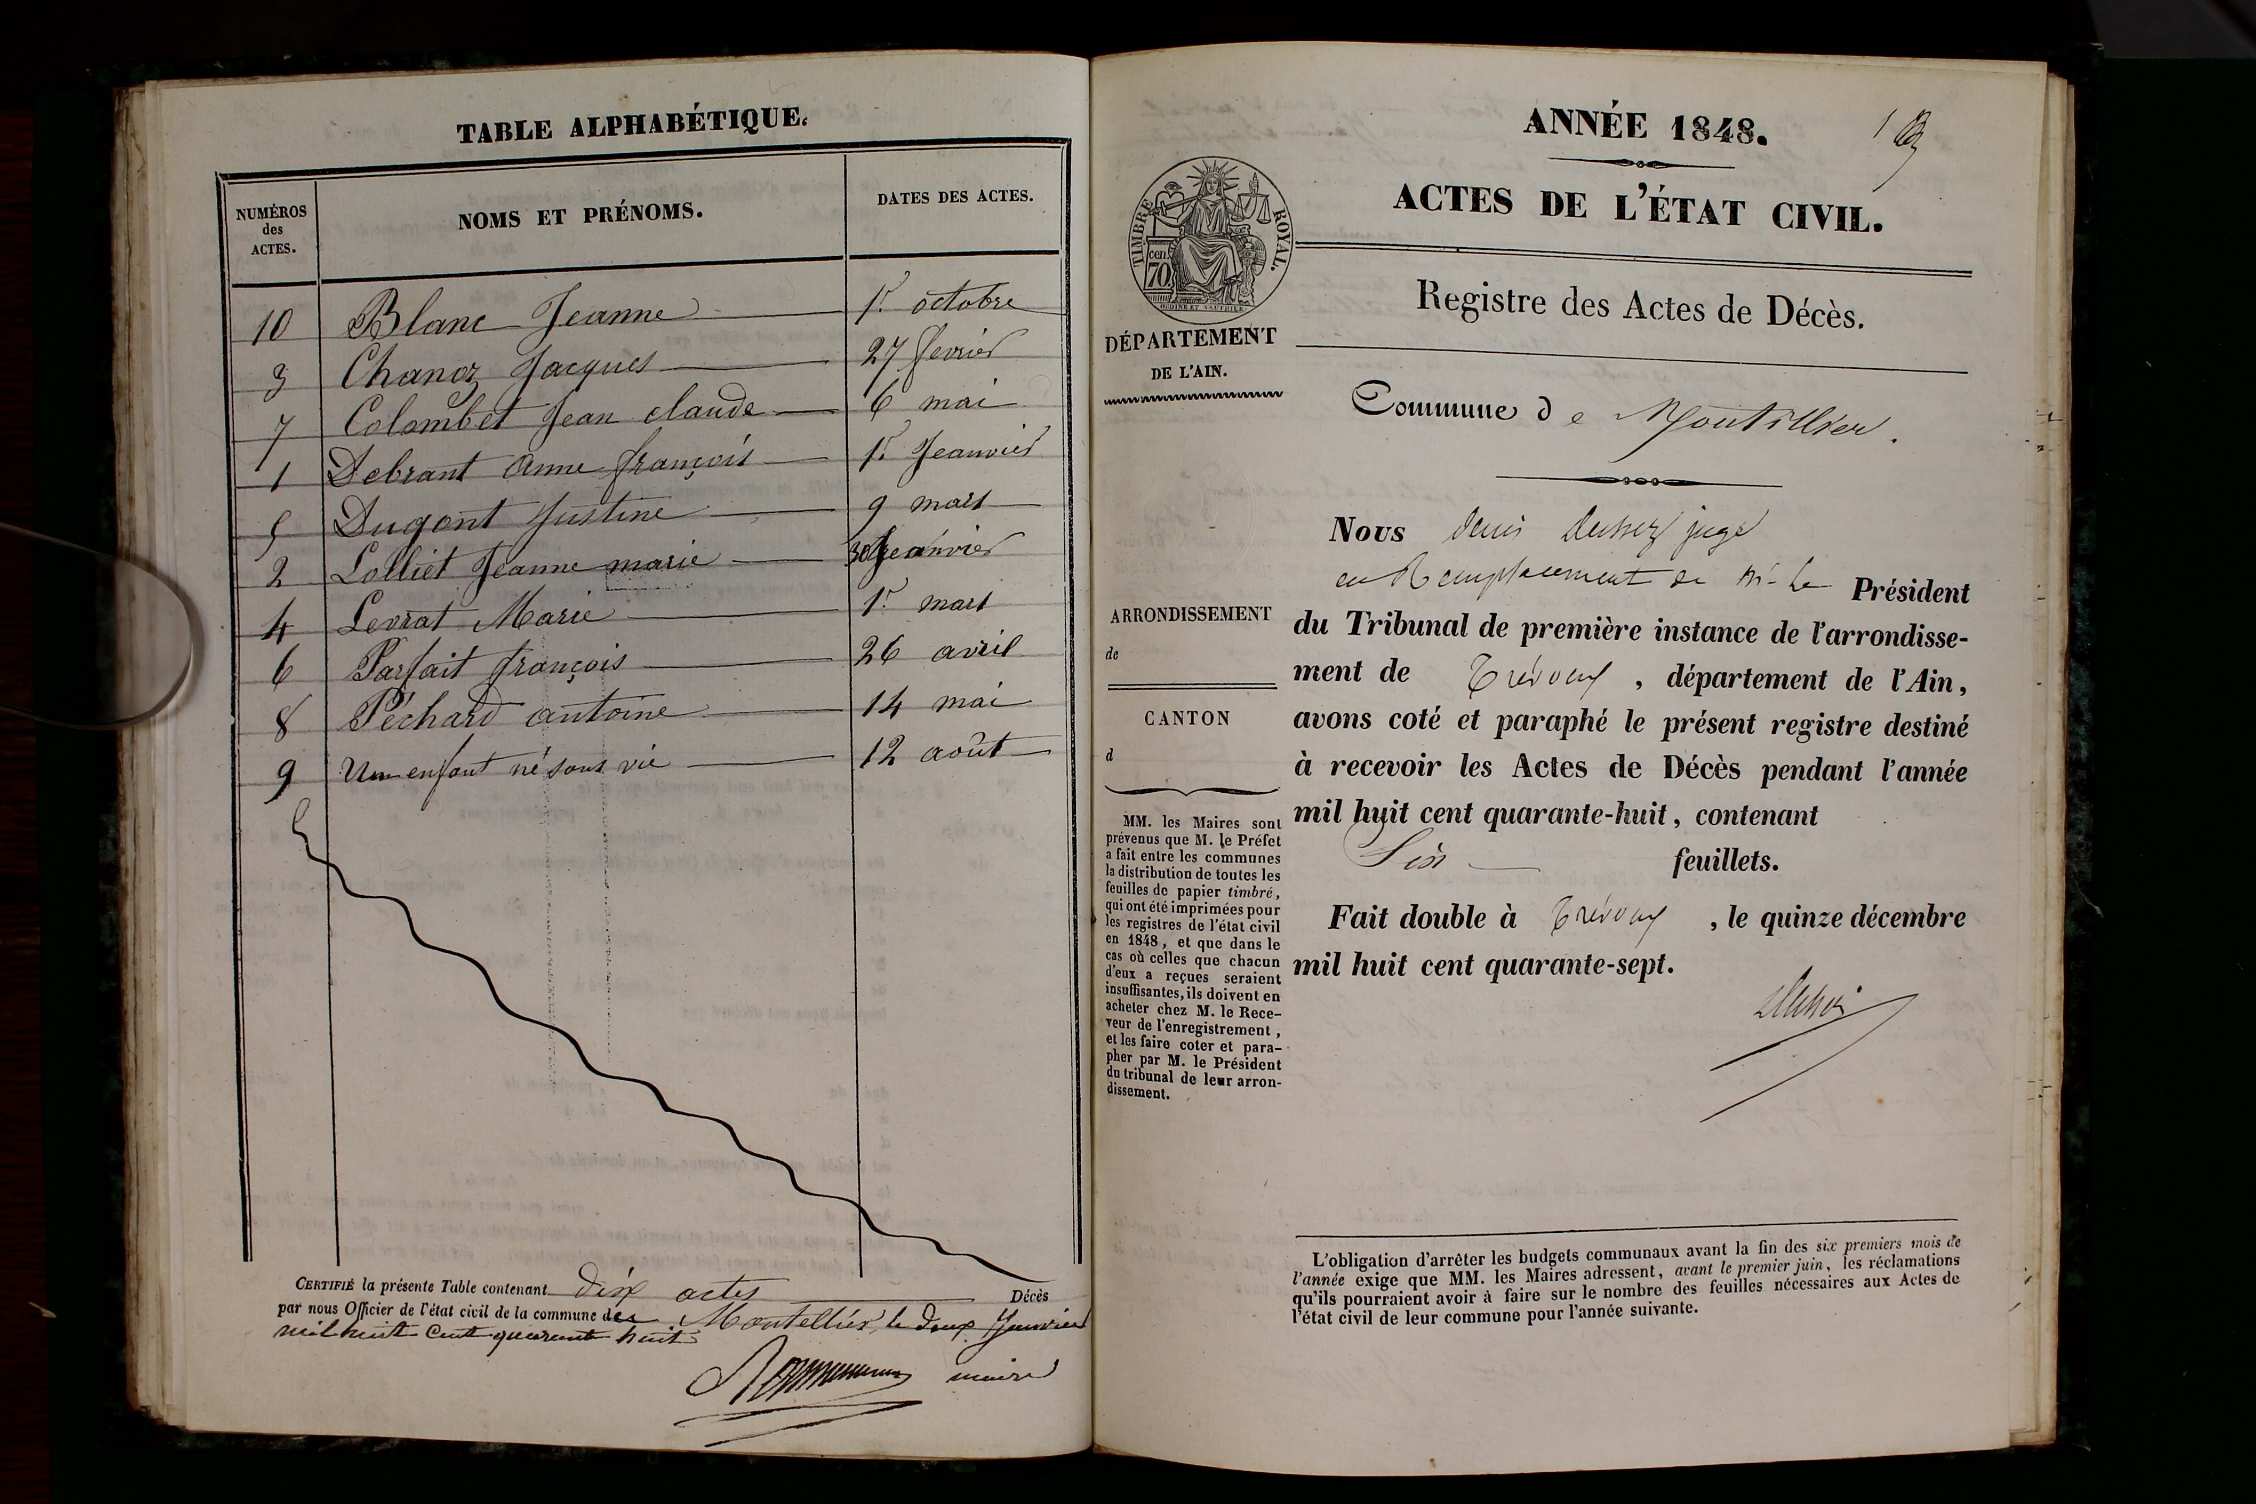 TABLE ALPHABÉTIQUE.
NUMÉROS
des
ACTES.
NOMS ET PRÉNOMS.
DATES DES ACTES.
10 Blanc Jeanne 1r. octobre
3 Chanoz Jacques 27 fevrier
7 Colombet Jean claude 6 mai
1 Debrant Anne françois 1r. Jeanvier
5 Dugont Justine 9 mars
2 Lolliet Jeanne marie 30 Jeanvier
4 Levrat Marie 1r. mars
6 Parfait françois 26 avril
8 Péchard antoine 14 mai
9 Un enfant né sans vie 12 août
CERTIFIÉ la présente Table contenant dix actes Décès
par nous Officier de l'état civil de la commune de Montellier, le deux Janvier
mil huit cent quarante huit
maire
ANNÉE 1848.
1
ACTES DE L'ÉTAT CIVIL.
TIMBRE ROYAL.
70 cen.
Registre des Actes de Décès.
DÉPARTEMENT
DE L'AIN.
Commune de Montellier.
Nous denis juge
en Remplacement de Mr. Le Président
du Tribunal de première instance de l'arrondisse-
ment de Trévoux, département de l'Ain,
avons coté et paraphé le présent registre destiné
à recevoir les Actes de Décès pendant l'année
mil huit cent quarante-huit, contenant
Six feuillets.
Fait double à Trévoux, le quinze décembre
mil huit cent quarante-sept.
ARRONDISSEMENT
de
CANTON
d
MM. les Maires sont
prévenus que M. le Préfet
a fait entre les communes
la distribution de toutes les
feuilles de papier timbré,
qui ont été imprimées pour
les registres de l'état civil
en 1848, et que dans le
cas où celles que chacun
d'eux a reçues seraient
insuffisantes, ils doivent en
acheter chez M. le Rece-
veur de l'enregistrement,
et les faire coter et para-
pher par M. le Président
du tribunal de leur arron-
dissement.
L'obligation d'arrêter les budgets communaux avant la fin des six premiers mois de
l'année exige que MM. les Maires adressent, avant le premier juin, les réclamations
qu'ils pourraient avoir à faire sur le nombre des feuilles nécessaires aux Actes de
l'état civil de leur commune pour l'année suivante.